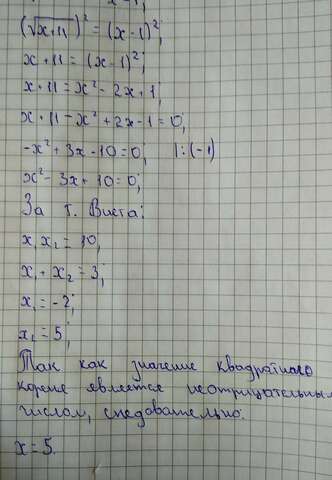 x-1;
(√x+11)² = (x-1)²;
x+11 = (x-1)²;
x+11 = x² - 2x + 1;
x+11 - x² + 2x - 1 = 0;
-x² + 3x - 10 = 0; | : (-1)
x² - 3x + 10 = 0;
За т. Виета:
x₁x₂ = 10,
x₁ + x₂ = 3;
x₁ = -2;
x₁ = 5;
Так как значение квадратного
корене является неотрицательным
числом, следовательно:
x = 5.